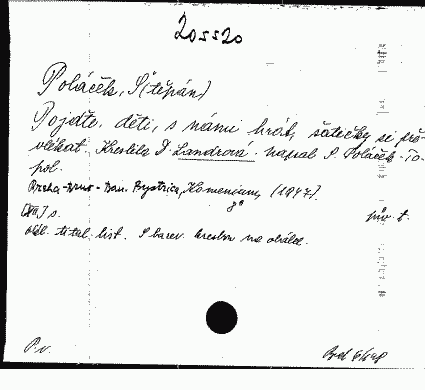 20ss20
Poláček, Š(těpán)
Pojďte, děti, s námi hrát, šatečky si pře-
vlékat. Kreslila D. Landrová. napsal Š. Poláček-To-
pol.
Praha-Brno-Ban. Bystrica, Komenium, (1947).
8°
s. priv. t.
obl. titul. list. S barev. kresbou na obálce.
P.v.